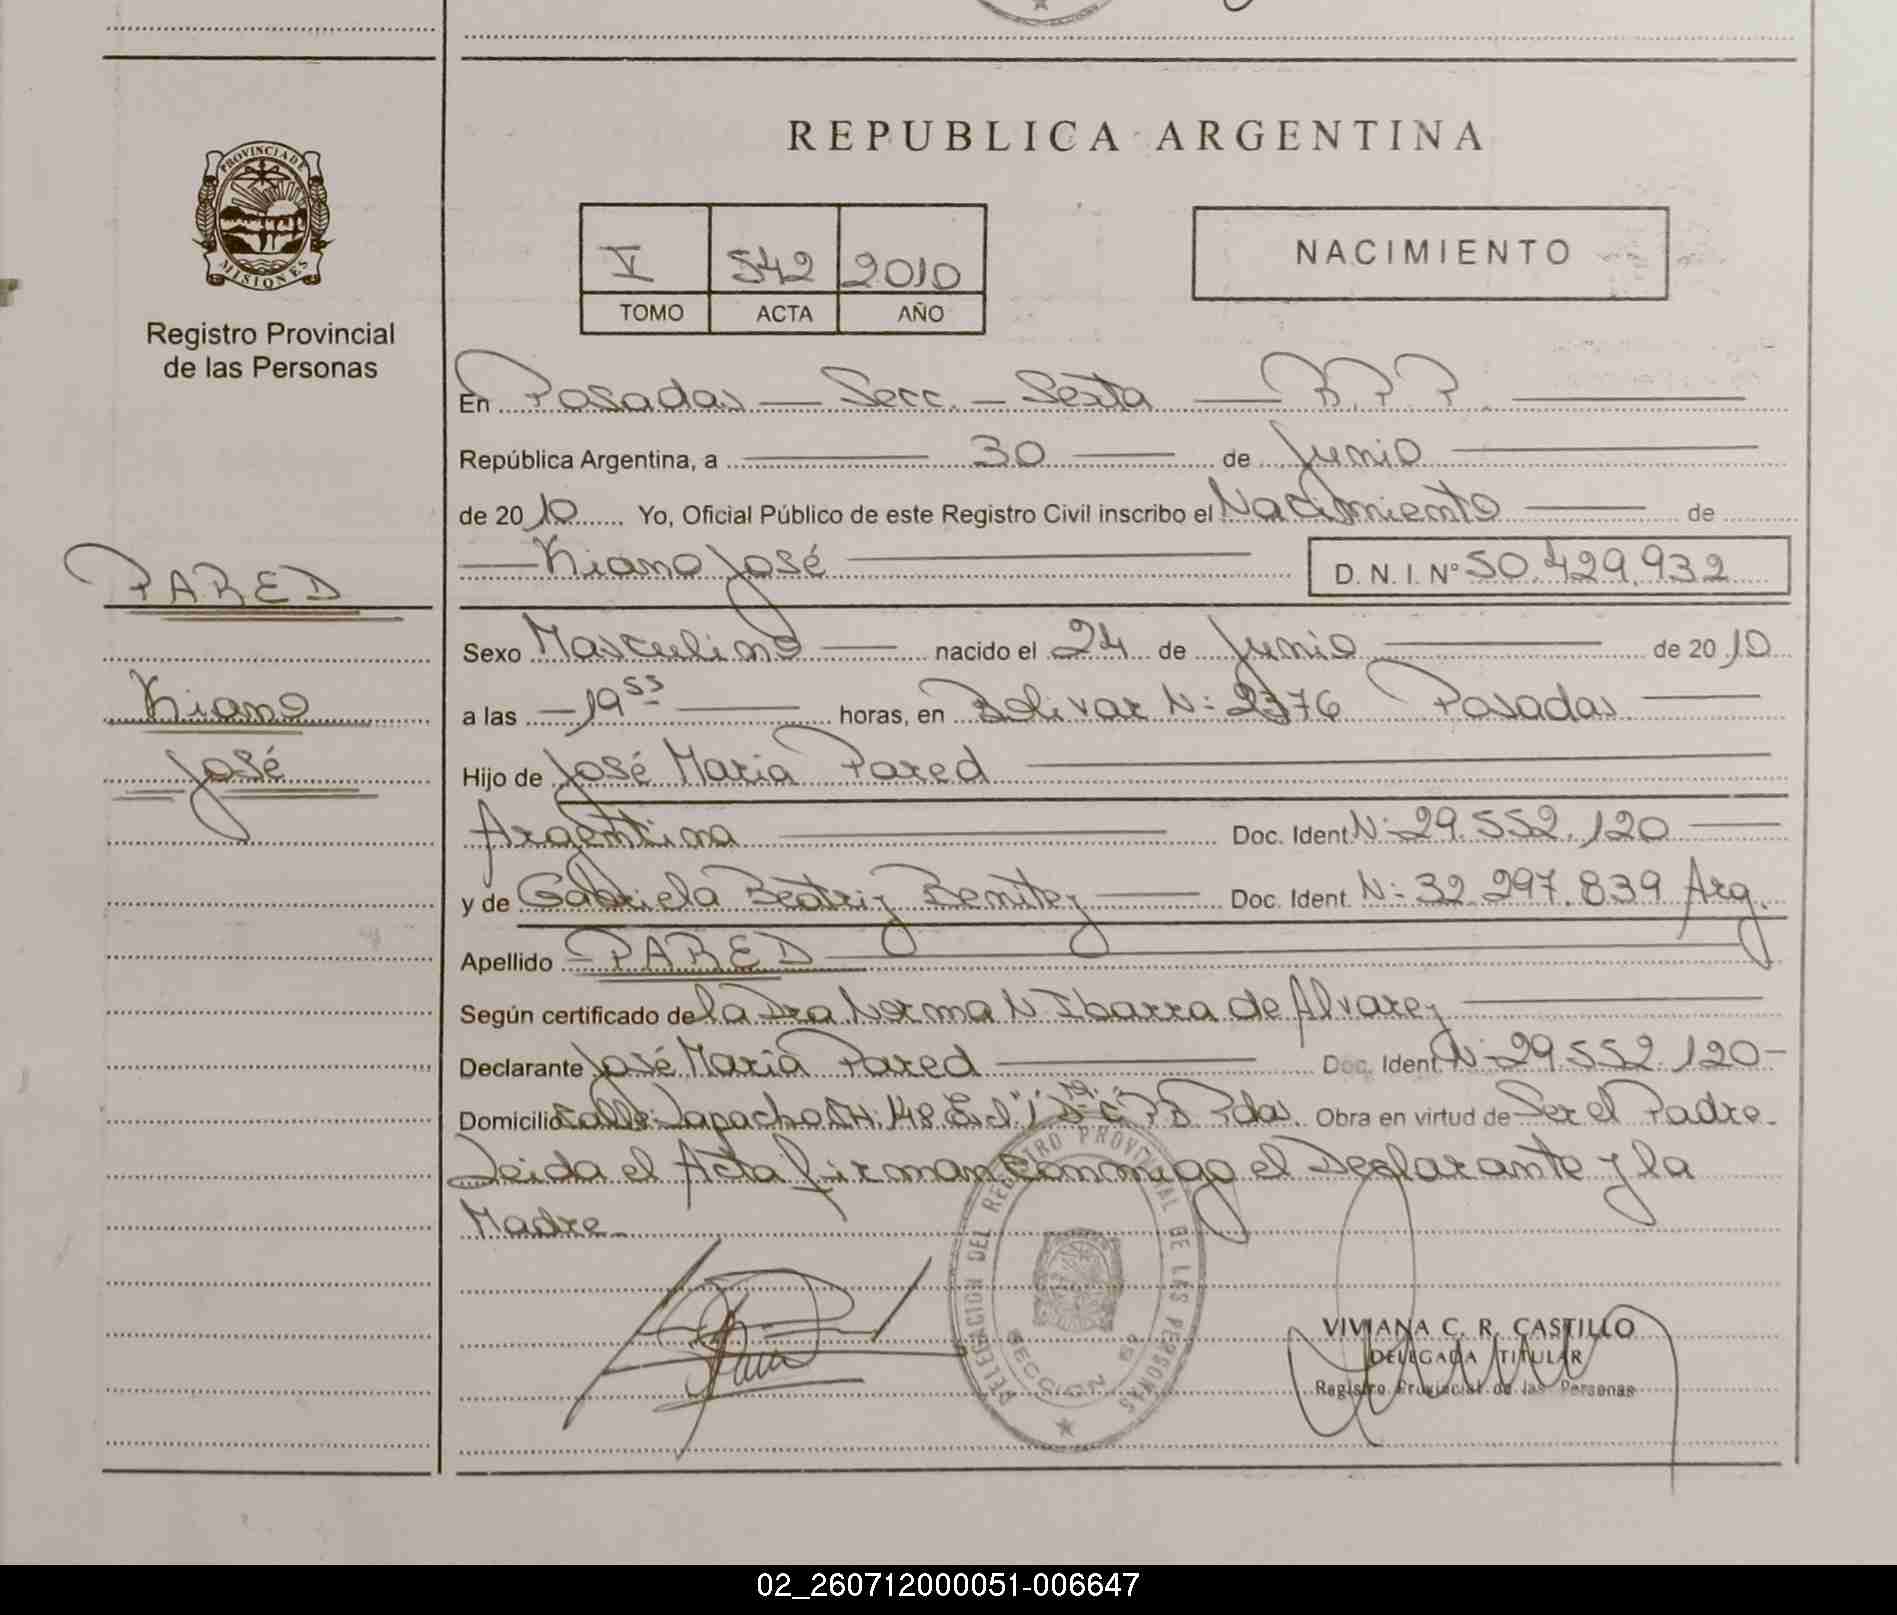 REPUBLICA ARGENTINA
PROVINCIA DE
MISIONES
Registro Provincial
de las Personas
V 542 2010
TOMO ACTA AÑO
NACIMIENTO
En Posadas — Secc. — Sexta — R.P.P.
República Argentina, a 30 de Junio
de 2010 Yo, Oficial Público de este Registro Civil inscribo el Nacimiento de
Kiano José D.N.I. Nº 50.429.932
PARED
Kiano
José
Sexo Masculino nacido el 24 de Junio de 2010
a las 19 53 horas, en Bolivar Nº 2376 Posadas
Hijo de José Maria Pared
Argentina Doc. Ident. Nº 29.552.120
y de Gabriela Beatriz Benitez Doc. Ident. Nº 32.297.839 Arg.
Apellido PARED
Según certificado de la Dra Norma N Ibarra de Alvarez
Declarante José Maria Pared Doc. Ident. Nº 29.552.120
Domicilio Calle Lapacho Pdas. Obra en virtud de Ser el Padre.
Leida el Acta firman conmigo el Declarante y la
Madre
DELEGACION DEL REGISTRO PROVINCIAL DE LAS PERSONAS
SECCION 6ª
VIVIANA C. R. CASTILLO
DELEGADA TITULAR
Registro Provincial de las Personas
02_260712000051-006647